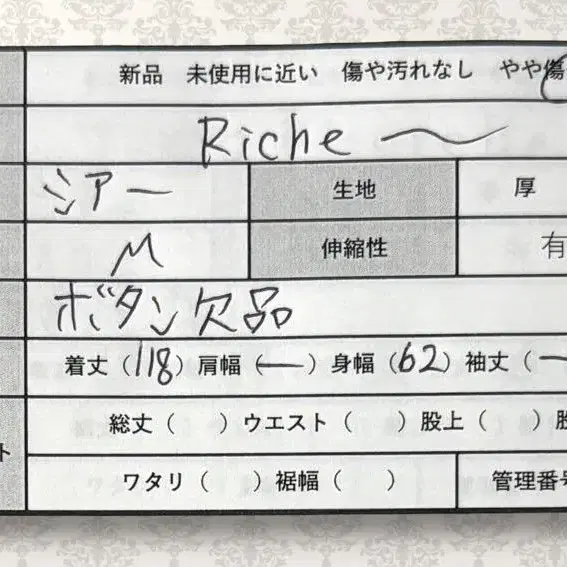 新品 未使用に近い 傷や汚れなし やや傷
Riche 〜
シアー 生地 厚
M 伸縮性 有
ボタン欠品
着丈（118）肩幅（ー）身幅（62）袖丈（ー
総丈（ ）ウエスト（ ）股上（ ）股
ト
ワタリ（ ）裾幅（ ） 管理番号